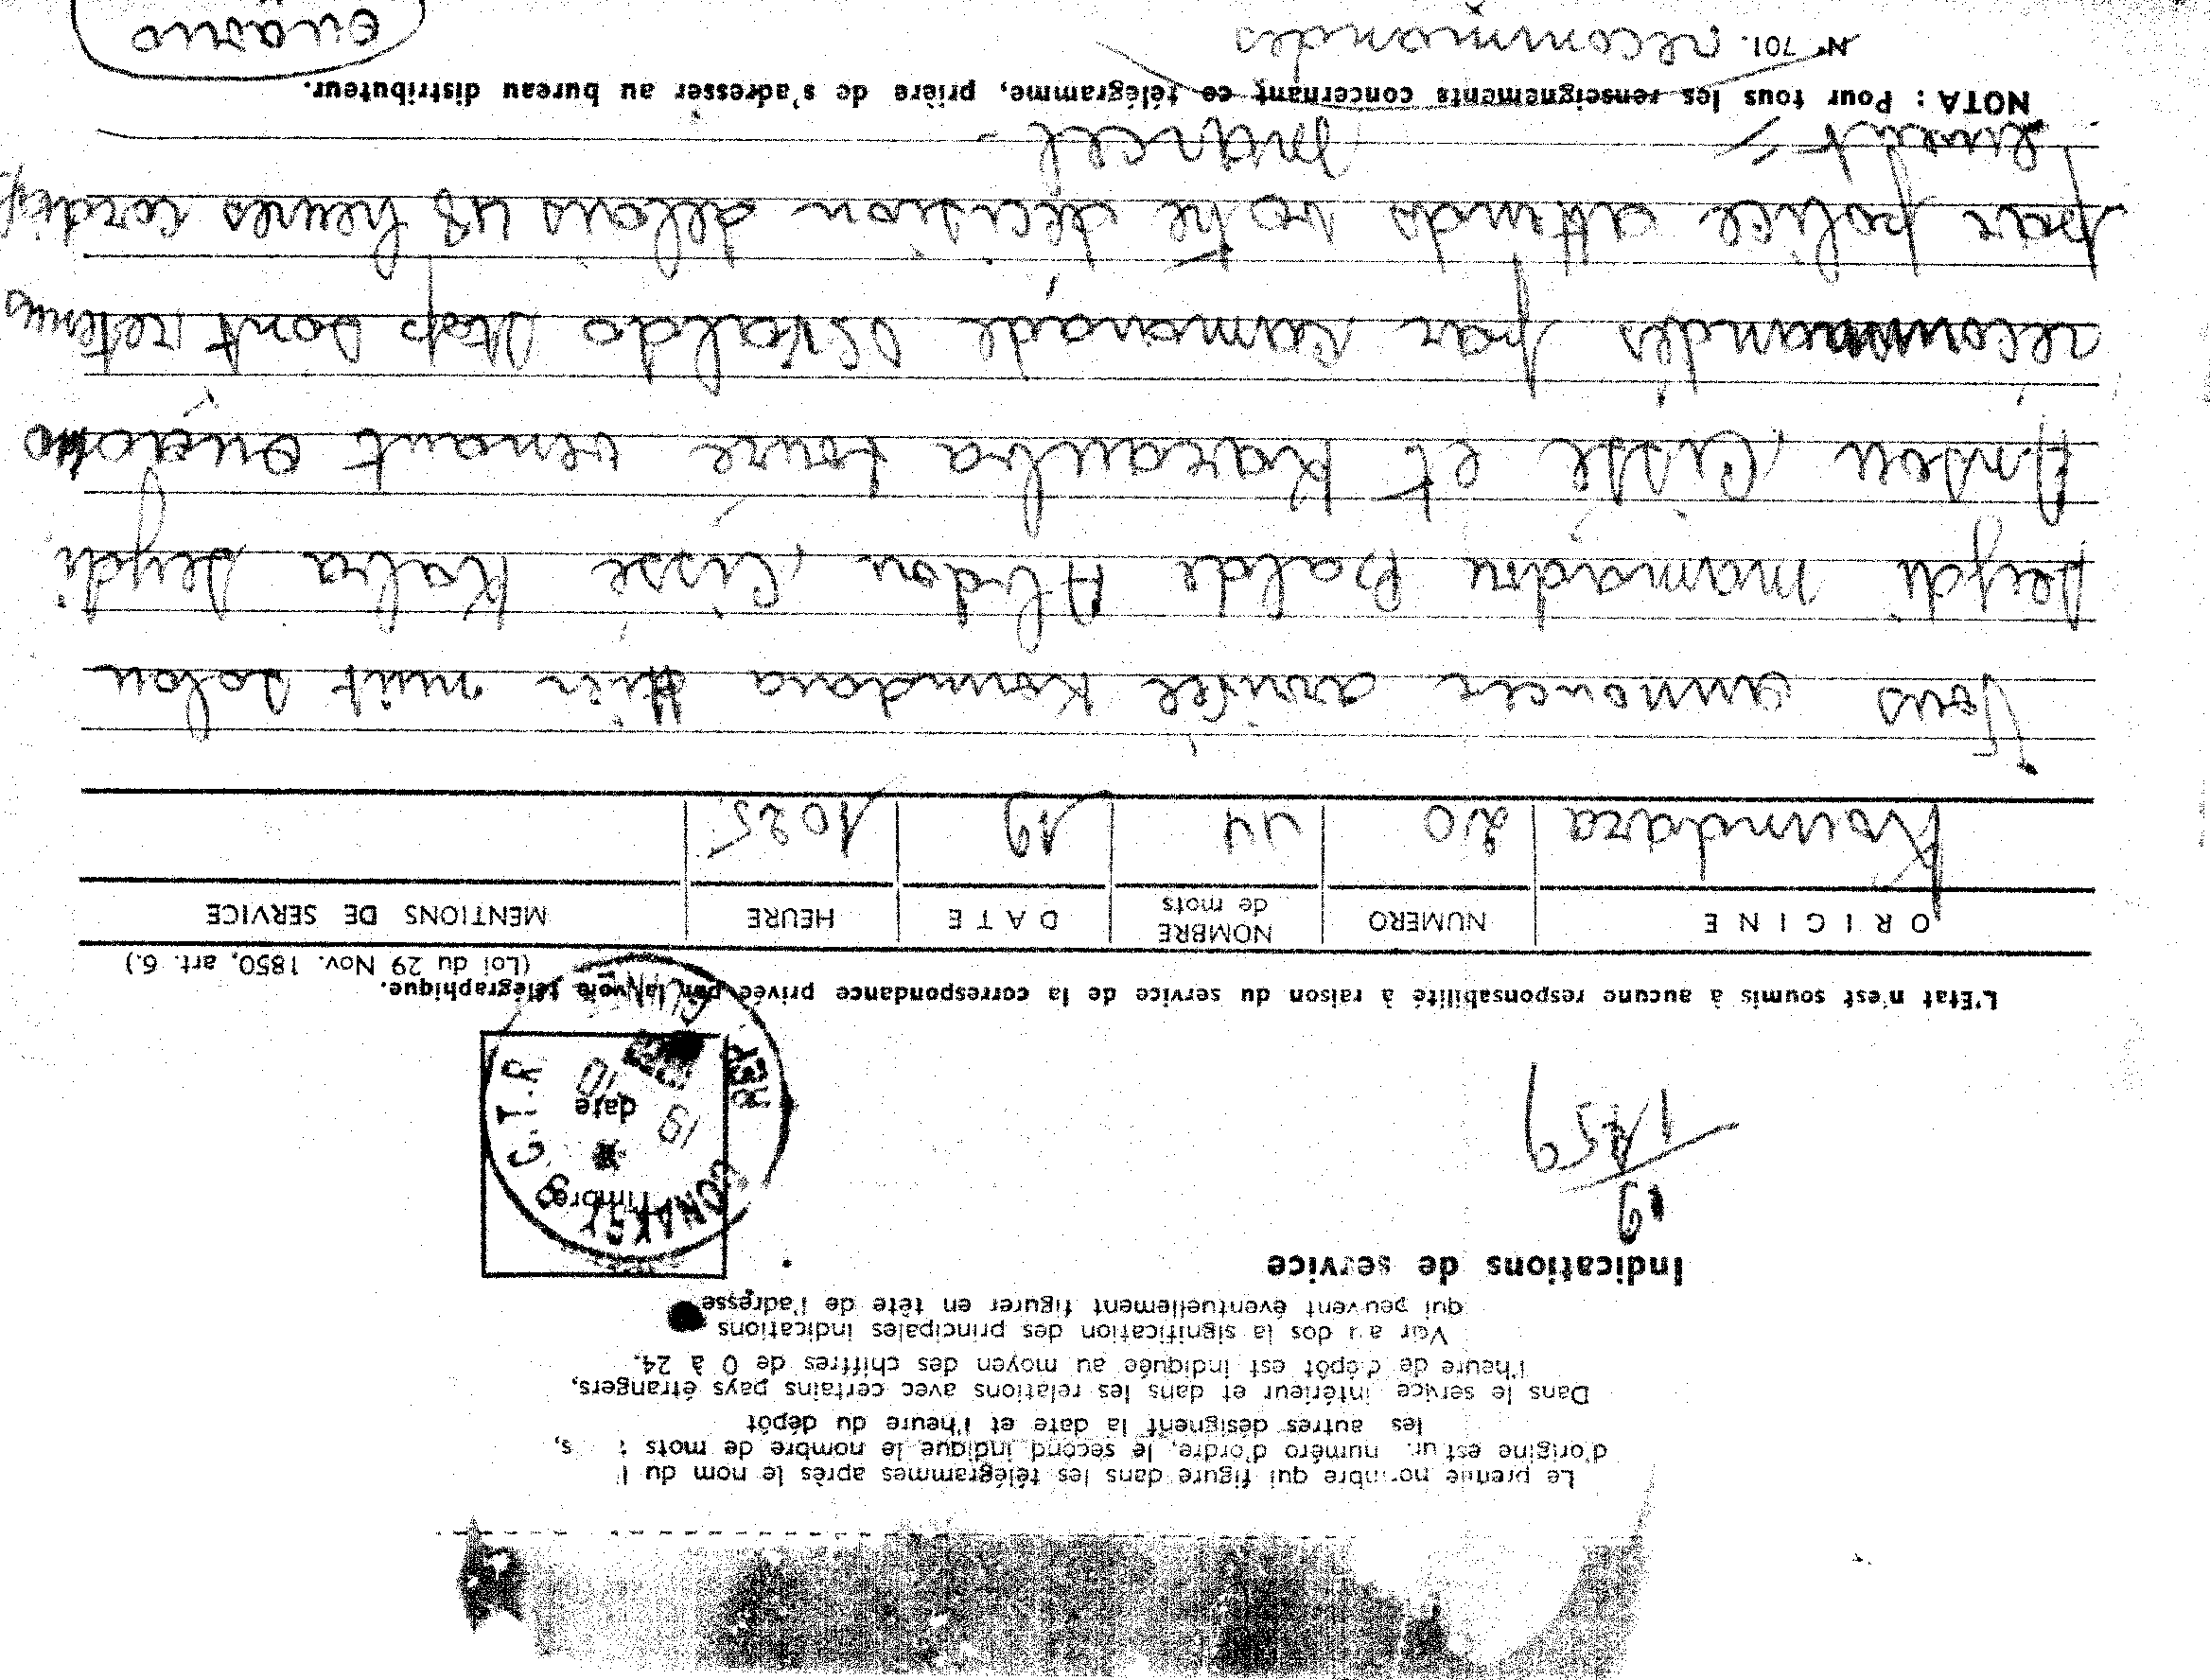 Le premie nombre qui figure dans les télégrammes après le nom du l
d'origine est un numéro d'ordre, le second indique le nombre de mots : s,
les autres désignent la date et l'heure du dépôt
Dans le service intérieur et dans les relations avec certains pays étrangers,
l'heure de dépôt est indiquée au moyen des chiffres de 0 à 24.
Voir au dos la signification des principales indications
qui peuvent éventuellement figurer en tête de l'adresse
Indications de service
Timbre
date
CONAKRY
REP. GUINEE
19
L'Etat n'est soumis à aucune responsabilité à raison du service de la correspondance privée par la voie télégraphique.
(Loi du 29 Nov. 1850, art. 6.)
ORIGINE NUMERO NOMBRE de mots DATE HEURE MENTIONS DE SERVICE
Koundara 20 44 19 1025
Vous annoncer arrivée Koundara Hier nuit Salou
Seydi mamadou Balde Abdou Cissé Kaba Seydi
Ansou Cissé et touré venant
recommandés par camarade Sont
par police attends votre décision delais 48 heures
Marcel -
NOTA : Pour tous les renseignements concernant ce télégramme, prière de s'adresser au bureau distributeur.
N° 701. recommandés